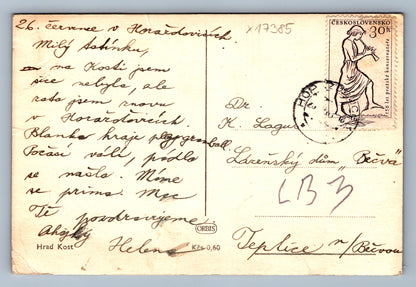 26. července v Horažďovicích x17385
Milý tatínku,
na Kosti jsem
sice nebyla, ale
zato jsem znovu
v Horažďovicích.
Blanka hraje
Počasí válí, pudlo
se našlo. Máme
se prima. Moc
Tě pozdravujeme.
Ahoj Helena
Hrad Kost
ORBIS
Kčs 0,60
ČESKOSLOVENSKO
30 h
150 let pražské konservatoře
Dr.
K. Lagus
Lázeňský dům „Bečva"
LB3
Teplice n/Bečvou